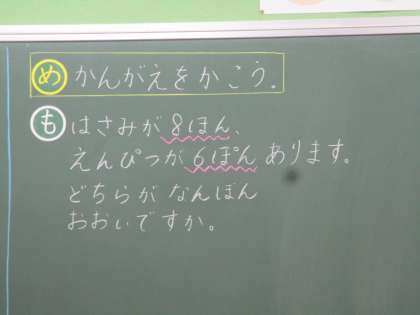 め かんがえをかこう。
も はさみが8ほん、
えんぴつが6ぽんあります。
どちらがなんぼん
おおいですか。